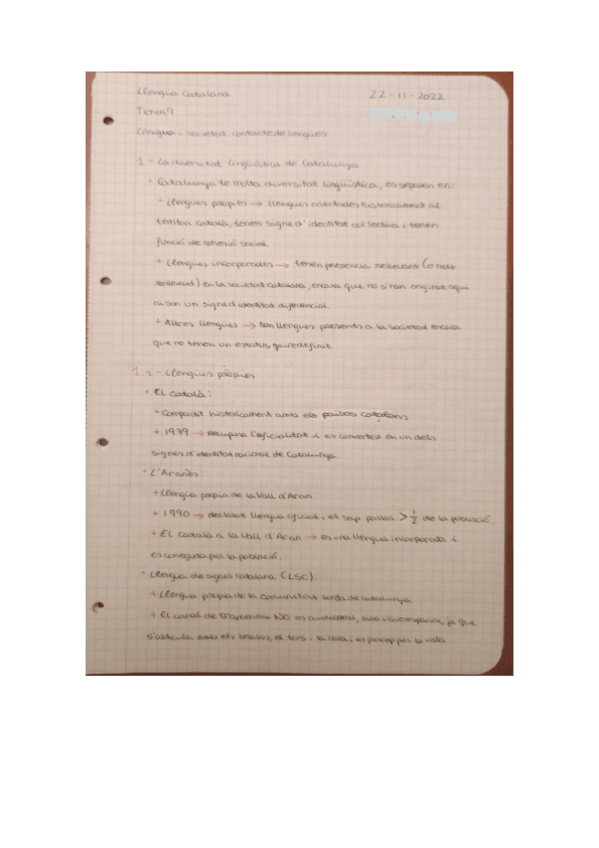 Llengua Catalana
22-11-2022
Tema 9
Llengua i societat. contacte de llengues
1.- La diversitat lingüística de Catalunya
· Catalunya té molta diversitat lingüística, es separen en:
+ Llengües pròpies → llengues orientades històricament al
territori català, tenen signe d'identitat col·lectiva i tenen
funció de cohesió social.
+ Llengües incorporades → tenen presència rellevant (o molt
rellevant) en la societat catalana, encara que no s'han originat aquí
ni son un signe d'identitat diferencial.
+ Altres llengues → son llengues presents a la societat encara
que no tenen un estatus gaire definit.
1.1 - Llengües pròpies
· El català:
+ Compartit històricament amb els països catalans
+ 1979 → recupera l'oficialitat i es converteix en un dels
signes d'identitat nacional de Catalunya.
· L'Aranès:
+ Llengua pròpia de la Vall d'Aran.
+ 1990 → declarat llengua oficial i el sap parlar > 1/2 de la població.
+ El català a la Vall d'Aran → es una llengua incorporada i
es coneguda per la població.
· Llengua de signes catalana (LSC):
+ Llengua pròpia de la comunitat sorda de catalunya
+ El canal de transmissió NO es auditiu, sino visuoespacial, ja que
s'articula amb els braços, el tors i la cara i es percep per la vista.